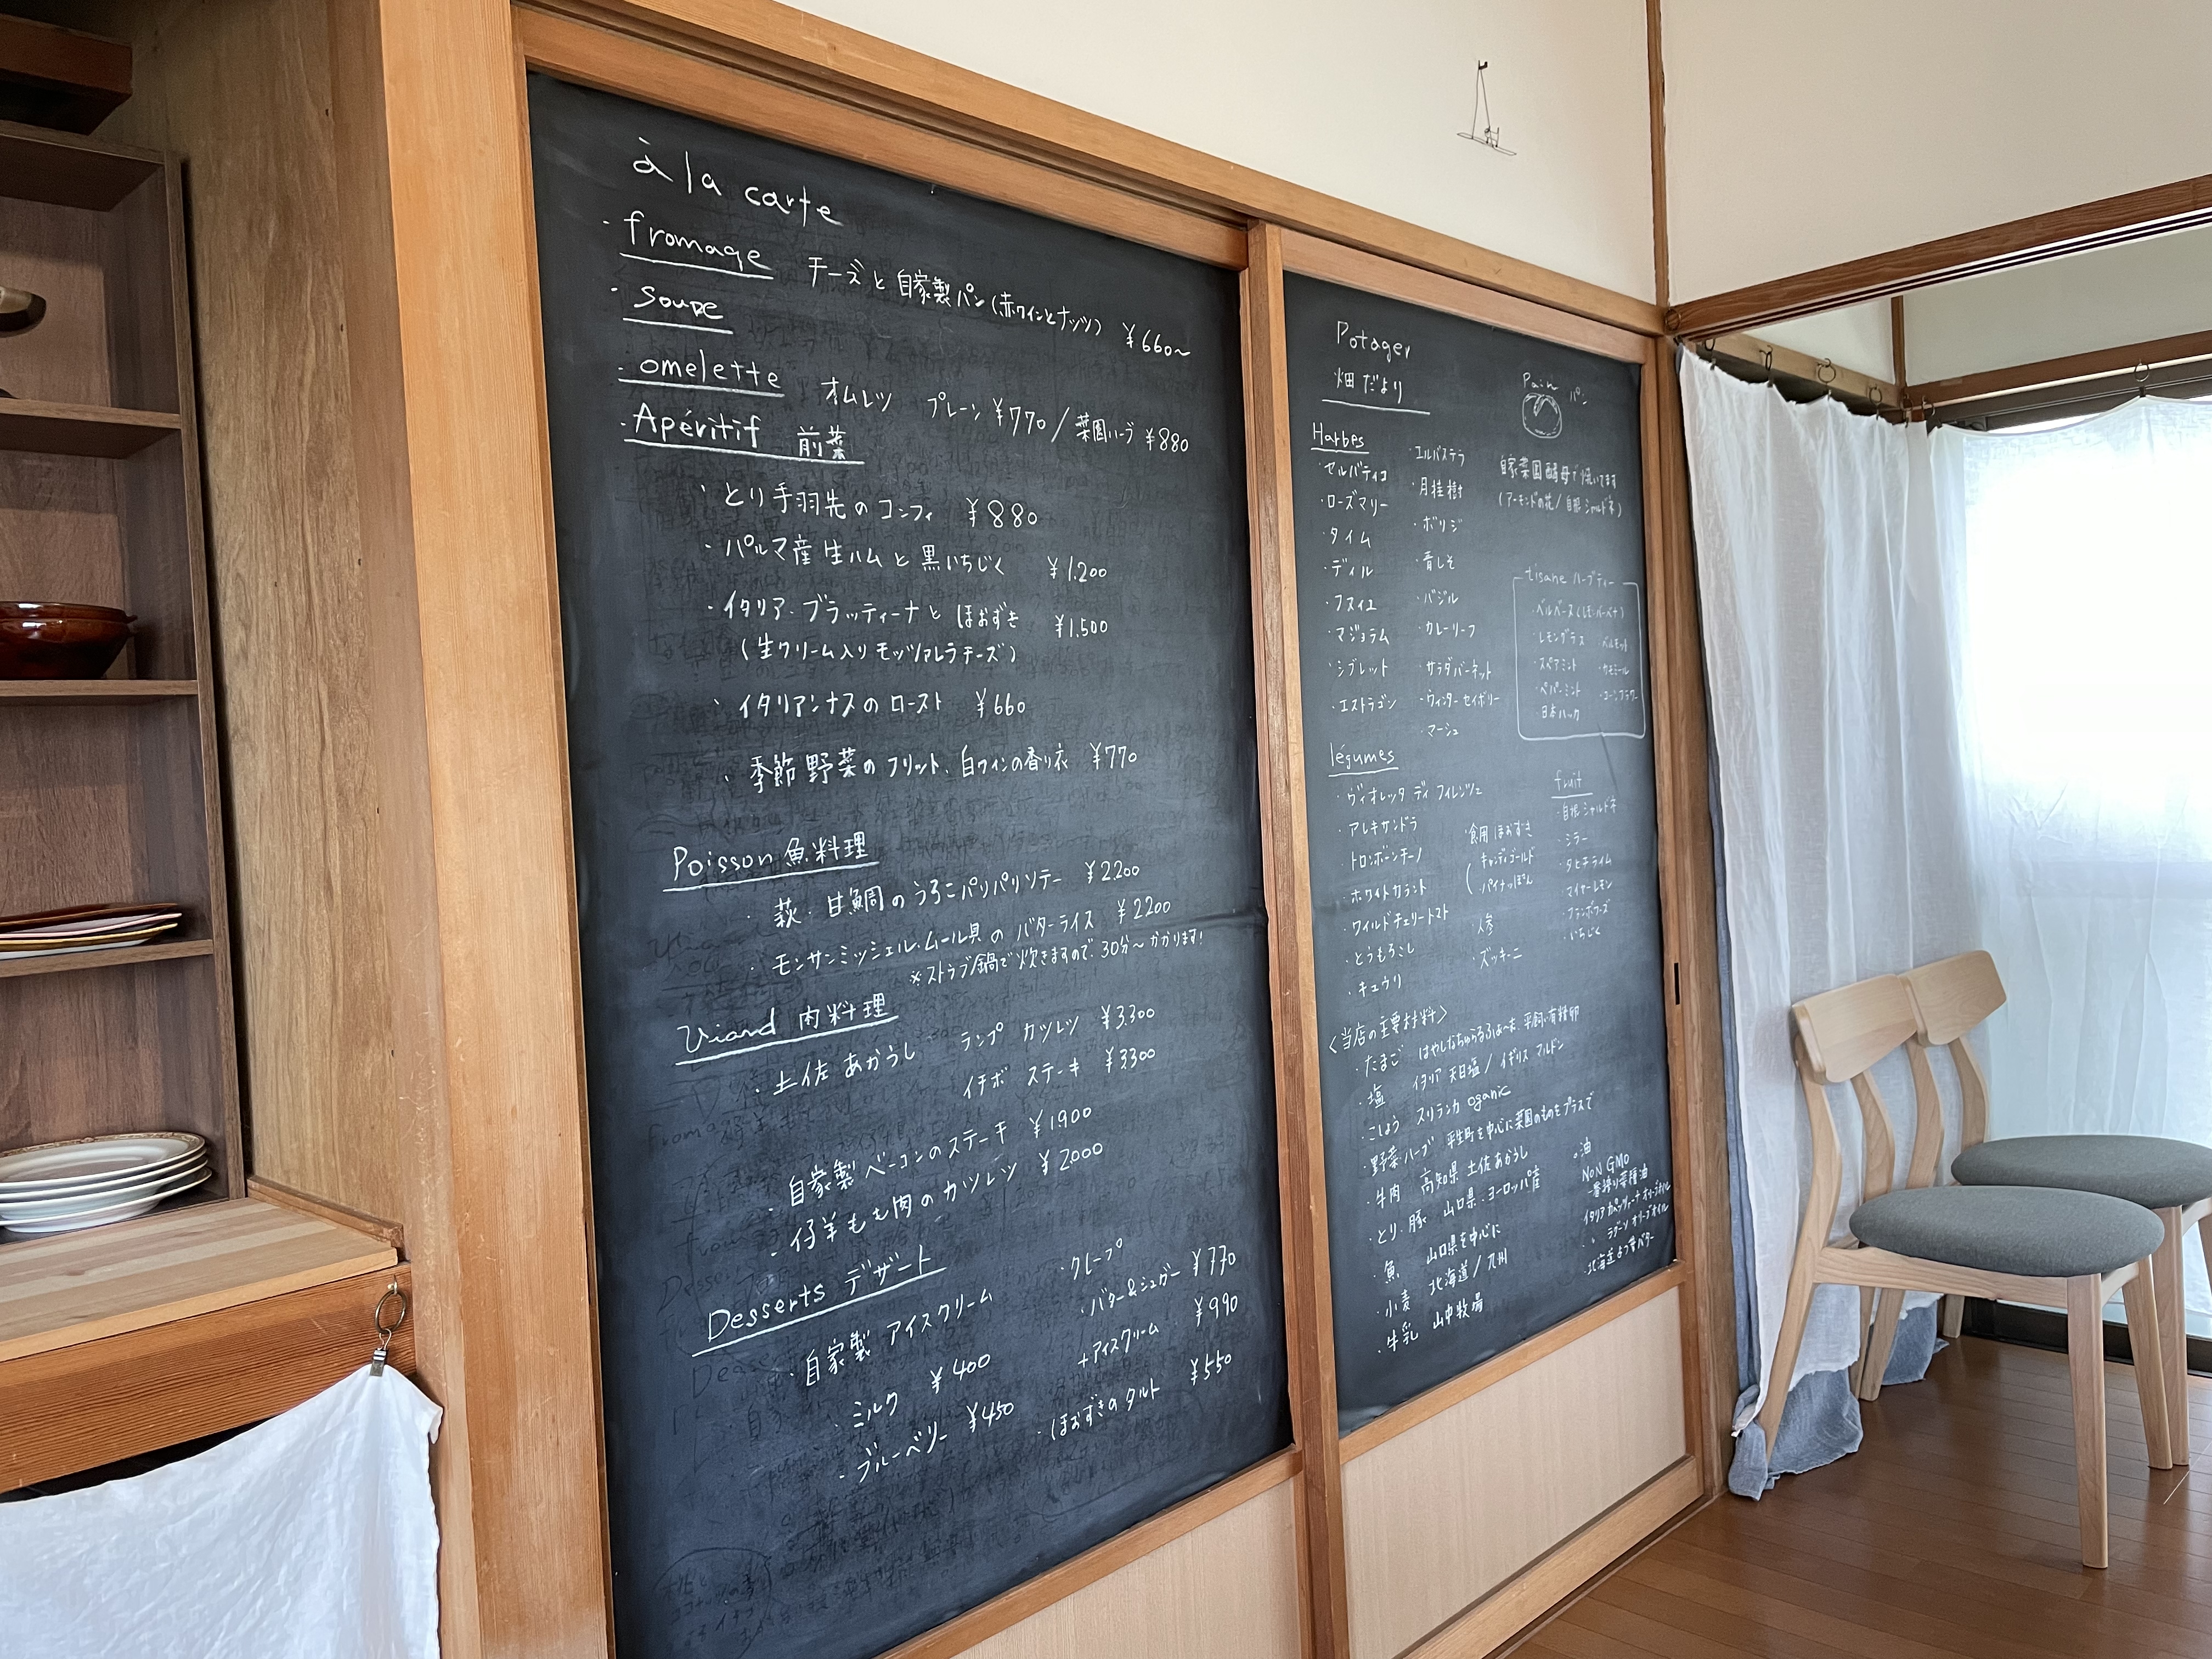 à la carte
・fromage チーズと自家製パン(赤ワインとナッツ) ¥660〜
・soupe
・omelette オムレツ プレーン ¥770/菜園ハーブ ¥880
・Apéritif 前菜
・とり手羽先のコンフィ ¥880
・パルマ産生ハムと黒いちじく ¥1.200
・イタリア・ブラッティーナとほおずき ¥1.500
(生クリーム入りモッツァレラチーズ)
・イタリアンナスのロースト ¥660
・季節野菜のフリット、白ワインの香り衣 ¥770
Poisson 魚料理
・萩・甘鯛のうろこパリパリソテー ¥2.200
・モンサンミッシェル・ムール貝のバターライス ¥2200
※ストウブ鍋で炊きますので、30分〜かかります!
Viand 肉料理
・土佐あかうし ランプ カツレツ ¥3.300
イチボ ステーキ ¥3300
・自家製ベーコンのステーキ ¥1.900
・仔羊もも肉のカツレツ ¥2000
Desserts デザート
・自家製アイスクリーム
・ミルク ¥400
・ブルーベリー ¥450
・クレープ
・バター&シュガー ¥770
+アイスクリーム ¥990
・ほおずきのタルト ¥550
Potager
畑だより
Harbes
・セルバティコ
・ローズマリー
・タイム
・ディル
・フヌイユ
・マジョラム
・シブレット
・エストラゴン
・エルバステラ
・月桂樹
・ボリジ
・青しそ
・バジル
・カレーリーフ
・サラダバーネット
・ウィンターセイボリー
・マーシュ
Pain パン
自家菜園酵母で焼いてます
(アーモンドの花/自根シャルドネ)
tisane ハーブティー
・ベルベーヌ(レモンバーベナ)
・レモングラス
・スペアミント
・ペパーミント
・日本ハッカ
・ベルモット
・カモミール
・コーンフラワー
légumes
・ヴィオレッタ ディ フィレンツェ
・アレキサンドラ
・トロンボーンチーノ
・ホワイトカラント
・ワイルドチェリートマト
・とうもろこし
・キュウリ
・食用ほおずき
キャンディゴールド
・パイナっぽん
・人参
・ズッキーニ
fruit
・自根シャルドネ
・ミラー
・タヒチライム
・マイヤーレモン
・フランボワーズ
・いちじく
<当店の主要材料>
・たまご はやしなちゅらるふぁーむ 平飼い有精卵
・塩 イタリア 天日塩/イギリス マルドン
・こしょう スリランカ oganic
・野菜・ハーブ 平生町を中心に菜園のものをプラスで
・牛肉 高知県 土佐あかうし
・とり、豚 山口県・ヨーロッパ産
・魚 山口県を中心に
・小麦 北海道/九州
・牛乳 山中牧場
油
NON GMO
一番搾り菜種油
オリーブオイル
北海道よつ葉バター